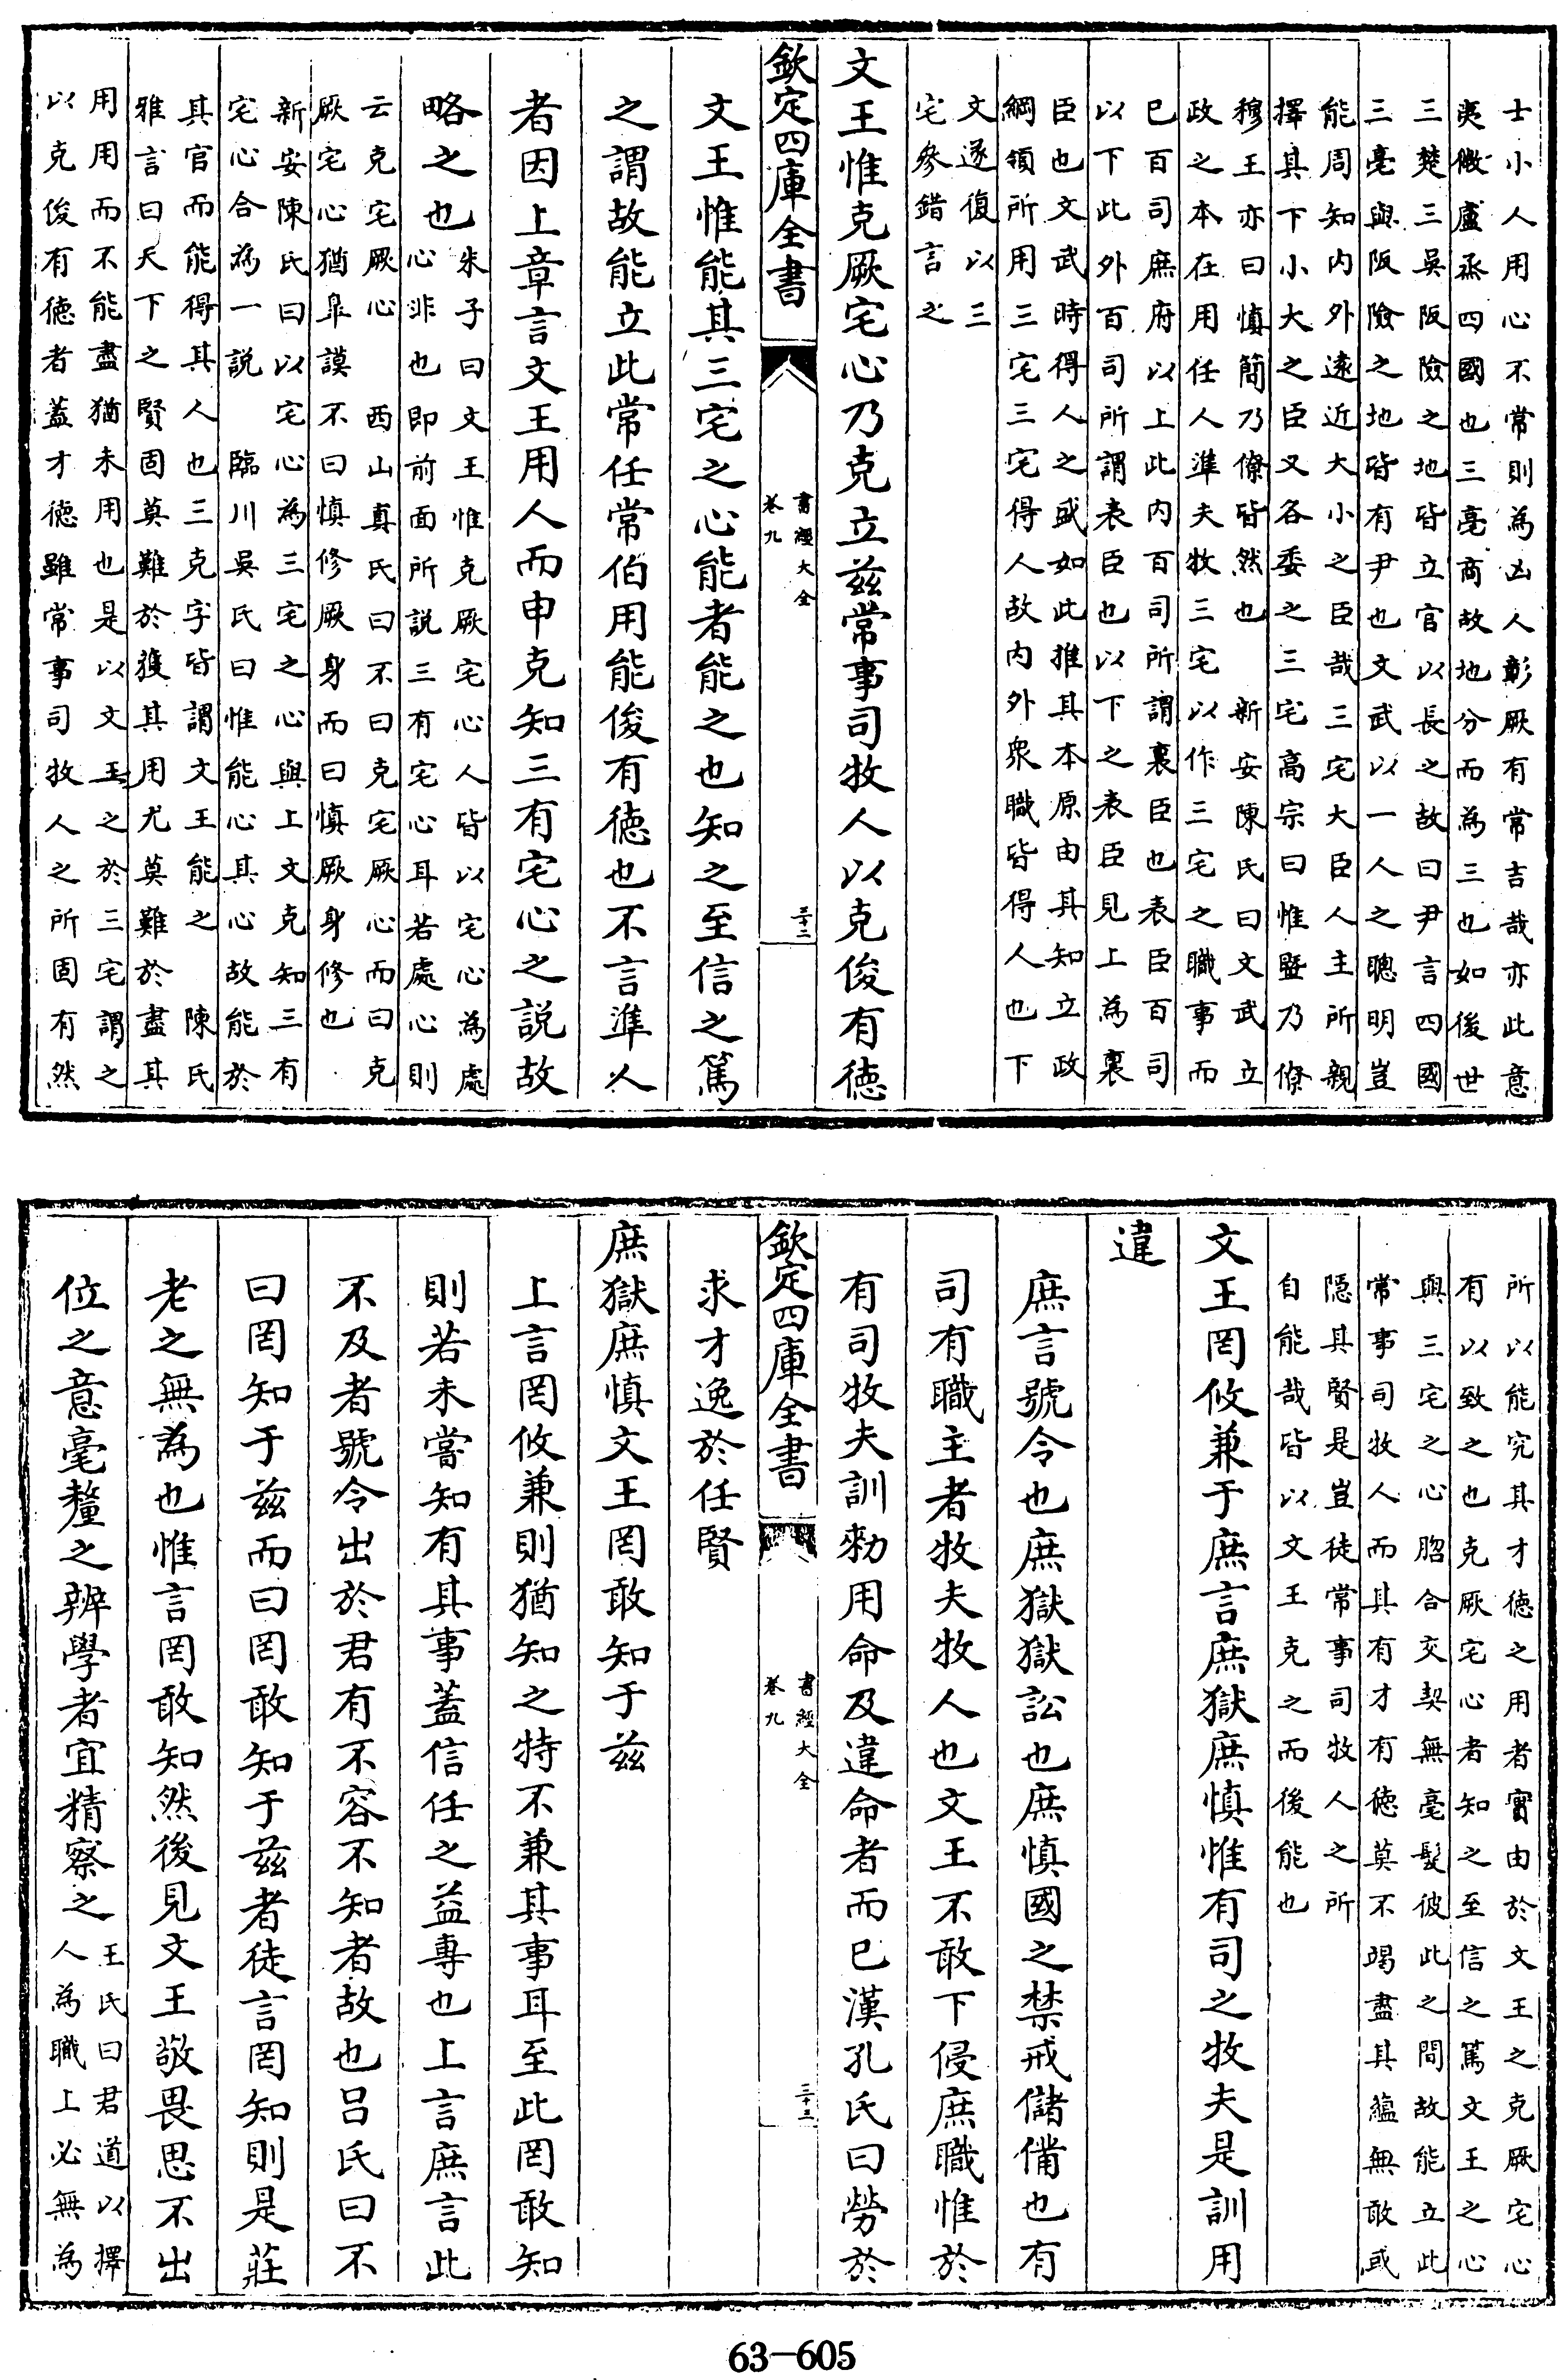 士小人用心不常則為凶人彰厥有常吉哉亦此意
夷微盧烝四國也三亳商故地分而為三也如後世
三楚三吳阪險之地皆立官以長之故曰尹言四國
三亳與阪險之地皆有尹也文武以一人之聰明豈
能周知内外逺近大小之臣哉三宅大臣人主所親
擇其下小大之臣又各委之三宅高宗曰惟暨乃僚
穆王亦曰慎簡乃僚皆然也 新安陳氏曰文武立
政之本在用任人準夫牧三宅以作三宅之職事而
已百司庶府以上此内百司所謂裏臣也表臣百司
以下此外百司所謂表臣也以下之表臣見上為裏
臣也文武時得人之盛如此推其本原由其知立政
綱領所用三宅三宅得人故内外衆職皆得人也下
文遂復以三
宅參錯言之
文王惟克厥宅心乃克立兹常事司牧人以克俊有德
欽定四庫全書
書經大全
卷九
三十二
文王惟能其三宅之心能者能之也知之至信之篤
之謂故能立此常任常伯用能俊有德也不言準人
者因上章言文王用人而申克知三有宅心之説故
略之也
朱子曰文王惟克厥宅心人皆以宅心為處
心非也即前面所説三有宅心耳若處心則
云克宅厥心 西山真氏曰不曰克宅厥心而曰克
厥宅心猶臯謨不曰慎修厥身而曰慎厥身修也
新安陳氏曰以宅心為三宅之心與上文克知三有
宅心合為一説 臨川吳氏曰惟能心其心故能於
其官而能得其人也三克字皆謂文王能之 陳氏
雅言曰天下之賢固莫難於獲其用尤莫難於盡其
用用而不能盡猶未用也是以文王之於三宅謂之
以克俊有德者蓋才德雖常事司牧人之所固有然
所以能究其才德之用者實由於文王之克厥宅心
有以致之也克厥宅心者知之至信之篤文王之心
與三宅之心脗合交契無毫髪彼此之間故能立此
常事司牧人而其有才有德莫不竭盡其蘊無敢或
隠其賢是豈徒常事司牧人之所
自能哉皆以文王克之而後能也
文王罔攸兼于庶言庶獄庶慎惟有司之牧夫是訓用
違
庶言號令也庶獄獄訟也庶慎國之禁戒儲備也有
司有職主者牧夫牧人也文王不敢下侵庶職惟於
有司牧夫訓勑用命及違命者而已漢孔氏曰勞於
欽定四庫全書
書經大全
卷九
三十三
求才逸於任賢
庶獄庶慎文王罔敢知于兹
上言罔攸兼則猶知之特不兼其事耳至此罔敢知
則若未嘗知有其事蓋信任之益專也上言庶言此
不及者號令出於君有不容不知者故也呂氏曰不
曰罔知于兹而曰罔敢知于兹者徒言罔知則是莊
老之無為也惟言罔敢知然後見文王敬畏思不出
位之意毫釐之辨學者宜精察之
王氏曰君道以擇
人為職上必無為
63-605